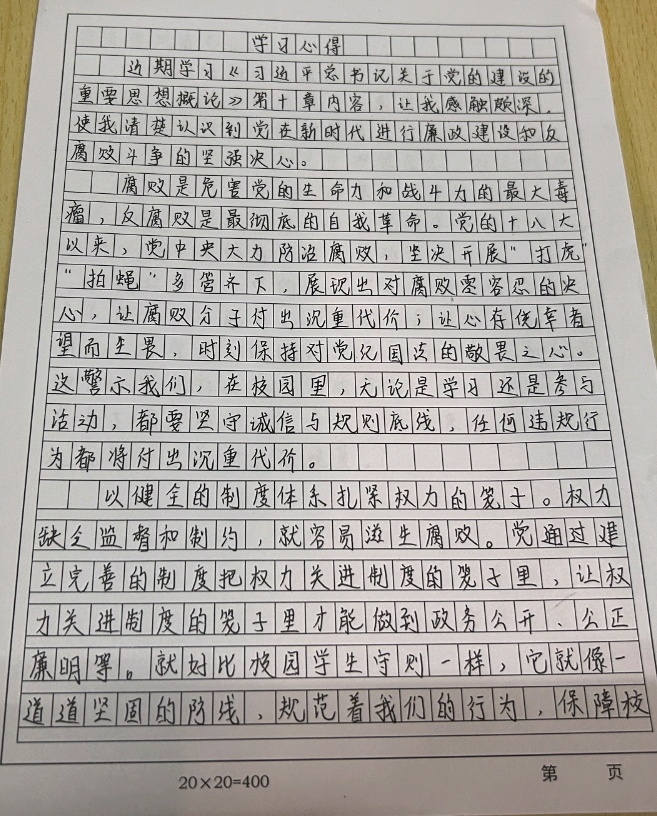 学习心得
近期学习《习近平总书记关于党的建设的
重要思想概论》第十章内容，让我感触颇深，
使我清楚认识到党在新时代进行廉政建设和反
腐败斗争的坚强决心。
腐败是危害党的生命力和战斗力的最大毒
瘤，反腐败是最彻底的自我革命。党的十八大
以来，党中央大力防治腐败，坚决开展“打虎”
“拍蝇”多管齐下，展现出对腐败零容忍的决
心，让腐败分子付出沉重代价；让心存侥幸者
望而生畏，时刻保持对党纪国法的敬畏之心。
这警示我们，在校园里，无论是学习还是参与
活动，都要坚守诚信与规则底线，任何违规行
为都将付出沉重代价。
以健全的制度体系扎紧权力的笼子。权力
缺乏监督和制约，就容易滋生腐败。党通过建
立完善的制度把权力关进制度的笼子里，让权
力关进制度的笼子里才能做到政务公开、公正
廉明等。就好比校园学生守则一样，它就像一
道道坚固的防线，规范着我们的行为，保障校
20×20=400
第 页